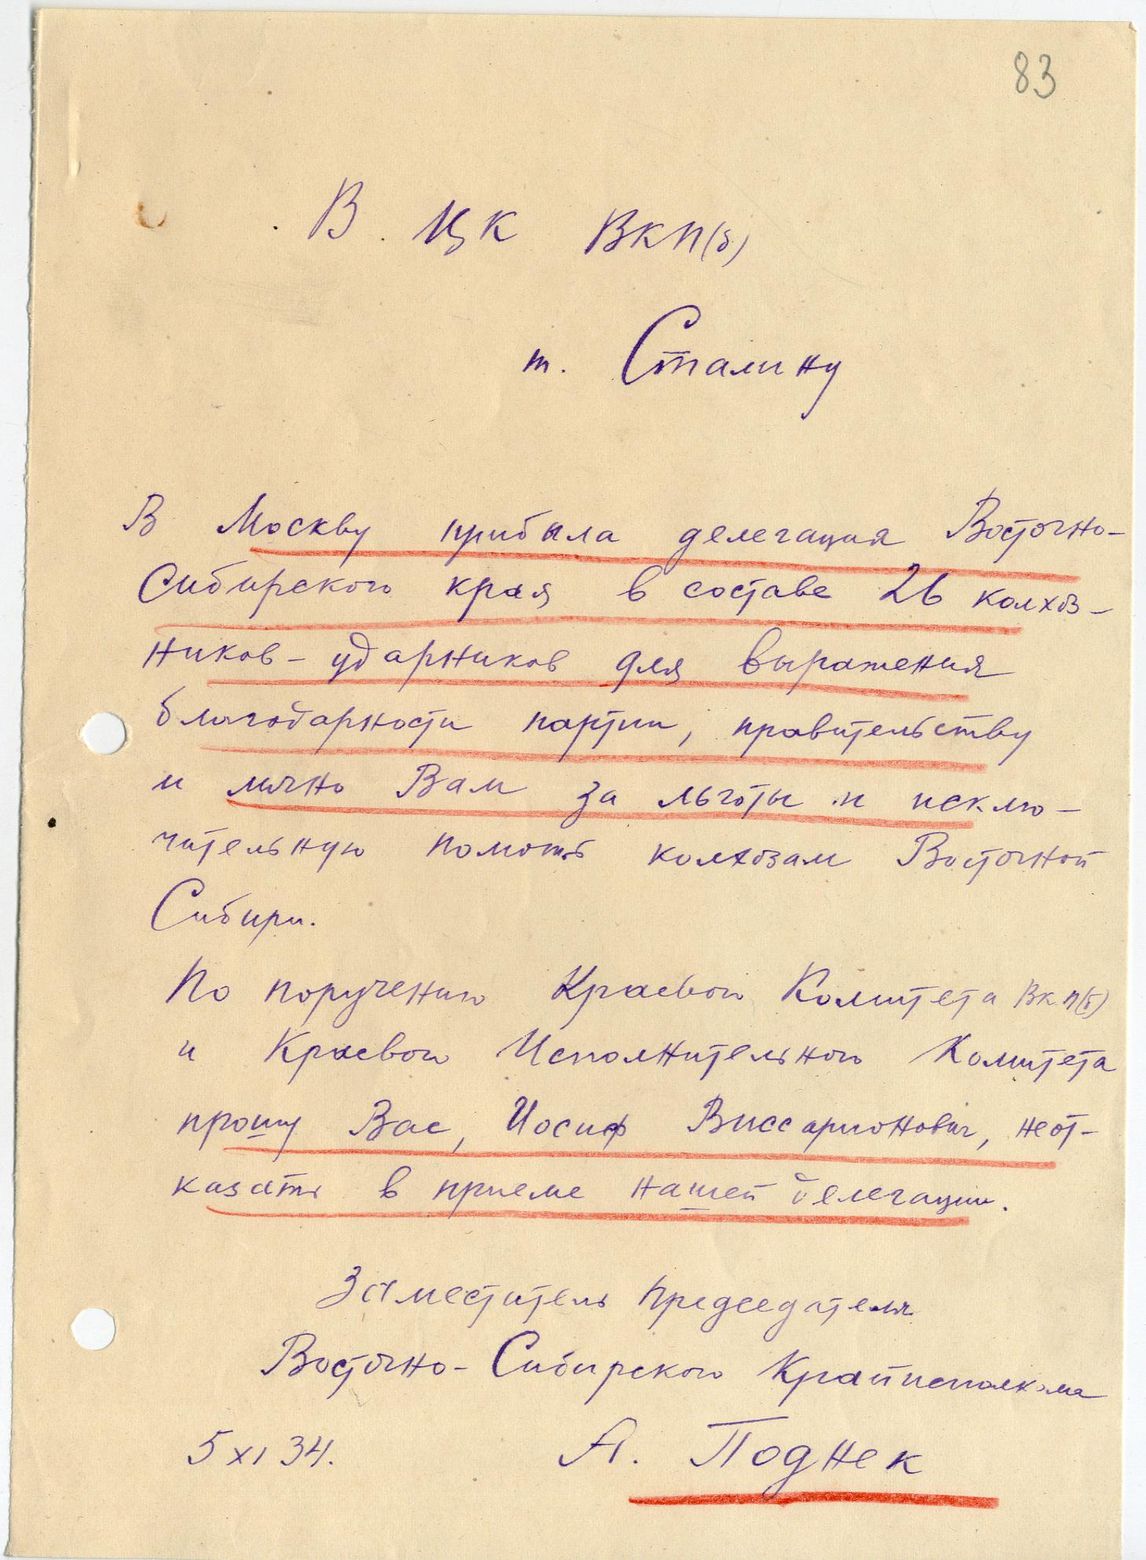 83
В ЦК ВКП(б)
т. Сталину
В Москву прибыла делегация Восточно-
Сибирского края в составе 26 колхоз-
ников-ударников для выражения
благодарности партии, правительству
и лично Вам за льготы и исклю-
чительную помощь колхозам Восточной
Сибири.
По поручению Краевого Комитета ВКП(б)
и Краевого Исполнительного Комитета
прошу Вас, Иосиф Виссарионович, неот-
казать в приеме нашей делегации.
Заместитель Председателя
Восточно-Сибирского Крайисполкома
5 XI 34. А. Поднек